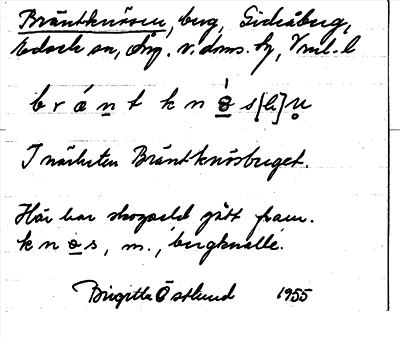 Bräntknösen, berg, Gideåberg,
Edsele sn, Ång. v. dms. hg, Vml. l
b r ä n t k n ø s [l] n
I närheten Bräntknösberget.
Här har skogseld gått fram.
k n ø s, m., bergknalle.
Birgitta Östlund 1955